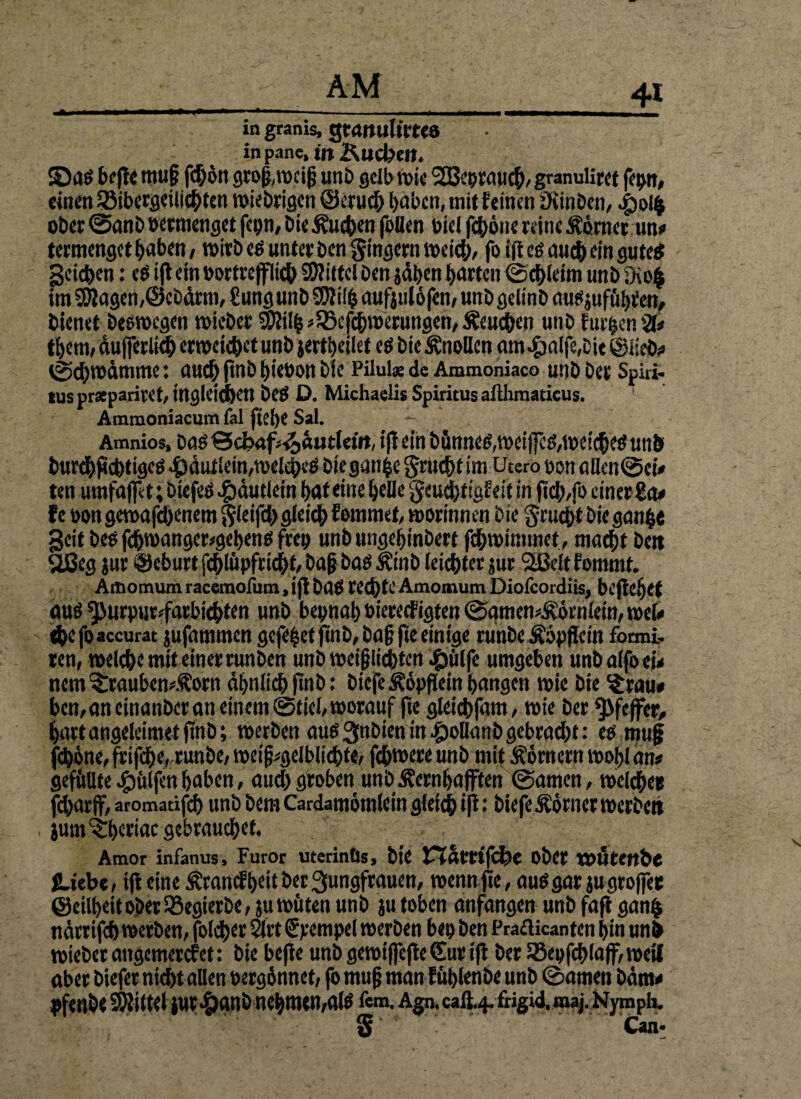 AM 41
in granis, granulirtes
in pane, in Kuchen.
Das beste muß schön groß, weiß und gelb wie Weyrauch, granuliret seyn,
einen Bibergeilichten wiedrigen Geruch haben, mit keinen Rinden, Holtz
oder Sand vermenget seyn, die Kuchen sollen viel schöne reine Körner un-
termenget haben, wird es unter den Fingern weich, so ist es auch ein gutes
Zeichen: es ist ein vortrefflich Mittel den zähen harten Schleim und Rotz
im Magen, Gedärm, Lung und Miltz aufzulösen, und gelind auszuführen,
dienet deswegen wieder Miltz-Beschwerungen, Keuchen und kurtzen A-
them, äusserlich erweichet und zertheilet es die Knollen am Halse, die Glied-
Schwämme: auch sind hievon die Pilulæ de Ammoniaco und der Spiri-
tus præpariret, ingleichen des D. Michaelis Spiritus asthmaticus.
Ammoniacum sal siehe Sal.
Amnios, das Schaf-Häutlein, ist ein dünnes, weisses, weiches und
durchsichtiges Häutlein, welches die gantze Frucht im Utero von allen Sei-
ten umfasset; dieses Häutlein hat eine helle Feuchtigkeit in sich, so einer La-
ke von gewaschenem Fleisch gleich kommet, worinnen die Frucht die gantze
Zeit des schwanger-gehens frey und ungehindert schwimmet, macht den
Weg zur Geburt schlüpfricht, daß das Kind leichter zur Welt kommt.
Amomum racemosum, ist das rechte Amomum Dioscordiis, bestehet
aus Purpur-farbichten und beynah viereckigten Samen-Körnlein, wel-
che so accurat zusammen gesetzet sind, daß sie einige runde Köpflein formi-
ren, welche mit einer runden und weißlichten Hülse umgeben und also ei-
nem Trauben-Korn ähnlich sind: diese Köpflein hangen wie die Trau-
ben, an einander an einem Stiel, worauf sie gleichsam, wie der Pfeffer,
hart angeleimet sind; werden aus Indien in Holland gebracht: es muß
schöne, frische, runde, weiß-gelblichte, schwere und mit Körnern wohl an-
gefüllte Hülsen haben, auch groben und Kernhafften Samen, welcher
scharff, aromatisch und dem Cardamömlein gleich ist: diese Körner werden
zum Theriac gebrauchet.
Amor insanus, Furor uterinûs, die Närrische oder wütende
Liebe, ist eine Kranckheit der Jungfrauen, wenn sie, aus gar zu grosser
Geilheit oder Begierde, zu wüten und zu toben anfangen und fast gantz
närrisch werden, solcher Art Exempel werden bey den Practicanten hin und
wieder angemercket: die beste und gewisseste Cur ist der Beyschlaff, weil
aber dieser nicht allen vergönnet, so muß man kühlende und Samen däm-
pfende Mittel zur Hand nehmen, als sem. Agn. cast. 4. frigid. maj. Nymph.
F Can-